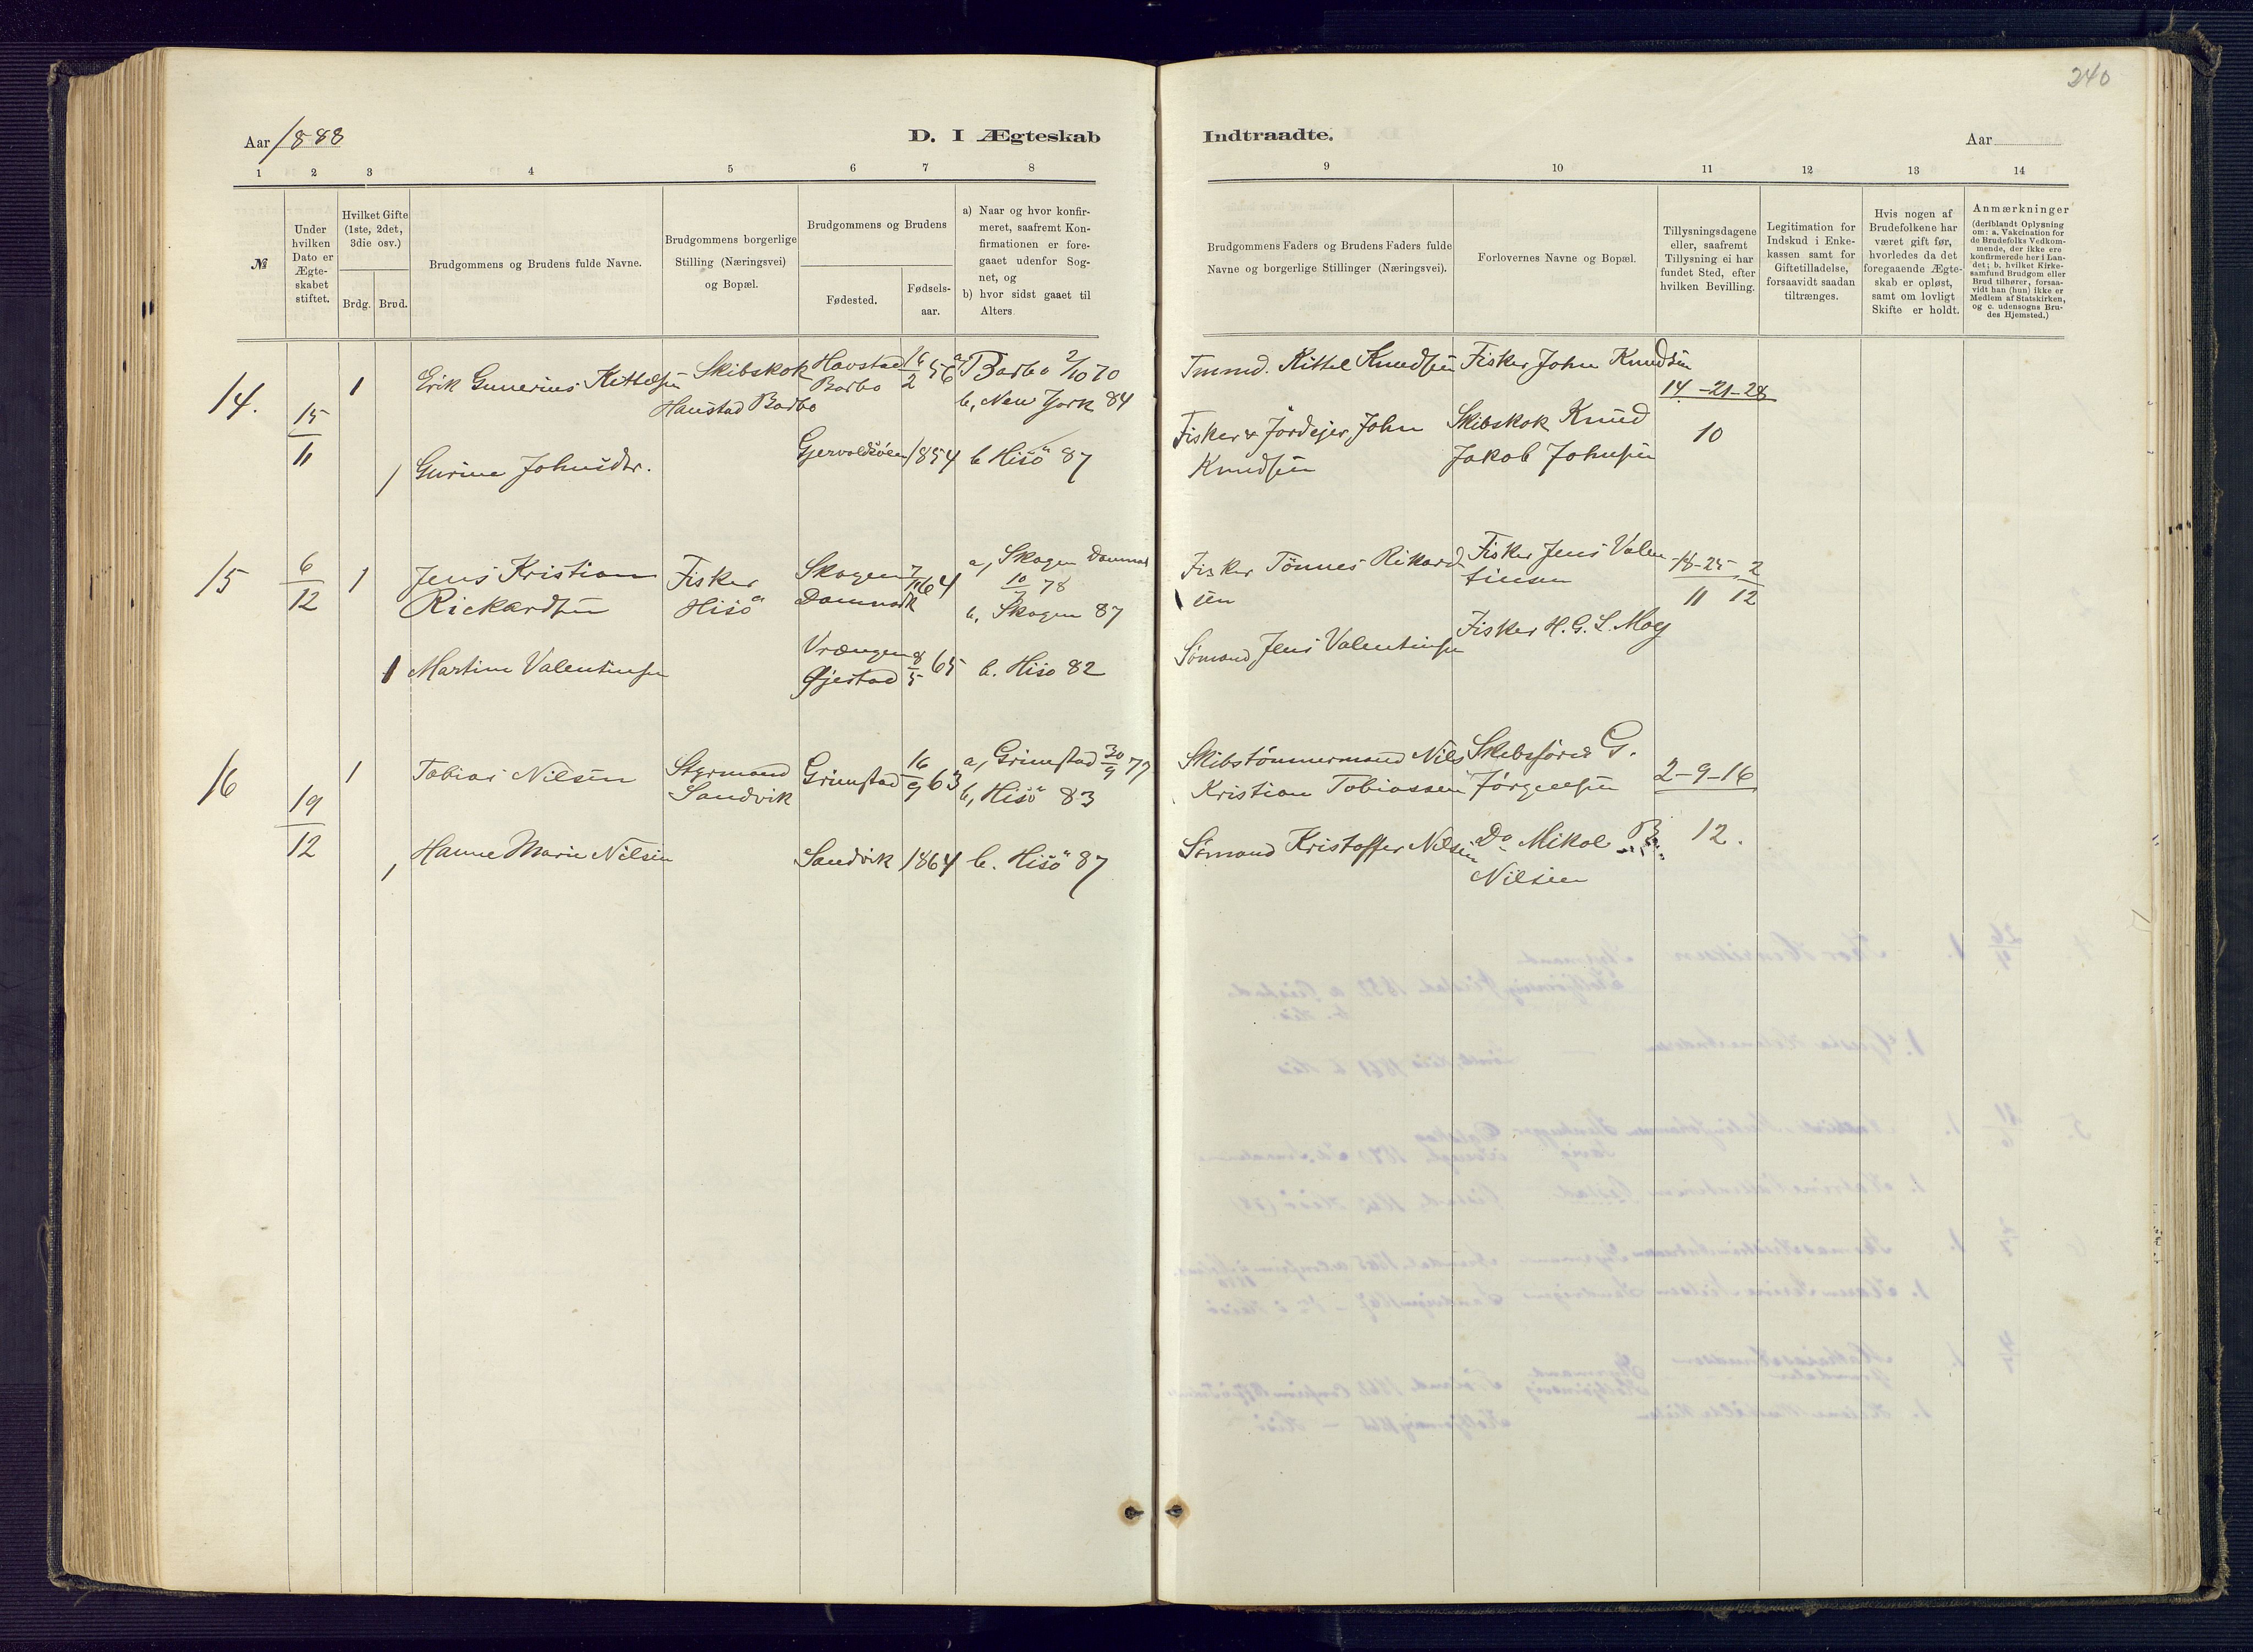 240
Aar 1888
D. I Ægteskab
Indtraadte.
Aar
1 2 3 4 5 6 7 8 9 10 11 12 13 14
№
Under hvilken Dato er Ægteskabet stiftet.
Hvilket Gifte (1ste, 2det, 3die osv.)
Brdg. Brud.
Brudgommens og Brudens fulde Navne.
Brudgommens borgerlige Stilling (Næringsvei) og Bopæl.
Brudgommens og Brudens
Fødested.
Fødselsaar.
a) Naar og hvor konfirmeret, saafremt Konfirmationen er foregaaet udenfor Sognet, og
b) hvor sidst gaaet til Alters
Brudgommens Faders og Brudens Faders fulde Navne og borgerlige Stillinger (Næringsvei).
Forlovernes Navne og Bopæl.
Tillysningsdagene eller, saafremt Tillysning ei har fundet Sted, efter hvilken Bevilling.
Legitimation for Indskud i Enkekassen samt for Giftetilladelse, forsaavidt saadan tiltrænges.
Hvis nogen af Brudefolkene har været gift før, hvorledes da det foregaaende Ægteskab er opløst, samt om lovligt Skifte er holdt.
Anmærkninger (deriblandt Oplysning om: a. Vakcination for de Brudefolks Vedkommende, der ikke ere konfirmerede her i Landet; b. hvilket Kirkesamfund Brudgom eller Brud tilhører, forsaavidt han (hun) ikke er Medlem af Statskirken, og c. udensogns Brudes Hjemsted.)
14. 15/11 1 Erik Gunerius Kittelsen Skibskok Havstad Barbo 16/2 56 a, Barbo 2/10 70
Haustad Barbo b, New York 84
Tmmd. Kittel Knudsen Fisker John Knudsen 14-21-28
10
1 Gurine Johnsdtr. Gjervoldsöen 1854 b Hisö 87
Fisker & Jordejer John Knudsen Skibskok Knud Jakob Johnsen
15 6/12 1 Jens Kristian Rickardsen Fisker Hisö Skagen Danmark 7/11 64 a, Skagen Danmark 10/ 78
b, Skagen 87
Fisker Tönnes Rikardsen Fisker Jens Valentinsen 18-25/11 2/12
1 Martine Valentinsen Vrængen Øjestad 8/5 65 b. Hisö 82
Sömand Jens Valentinsen Fisker H. G. S. Moy
16 19/12 1 Tobias Nilsen Styrmand Sandvik Grimstad 16/9 63 a, Grimstad 30/9 77
b, Hisö 83
Skibstömmermand Nils Kristian Tobiassen Skibsförer G. Jörgensen 2-9-16
12.
1 Hanne Marie Nilsen Sandvik 1864 b. Hisö 87
Sömand Kristoffer Nilsen Do Mikal B. Nilsen